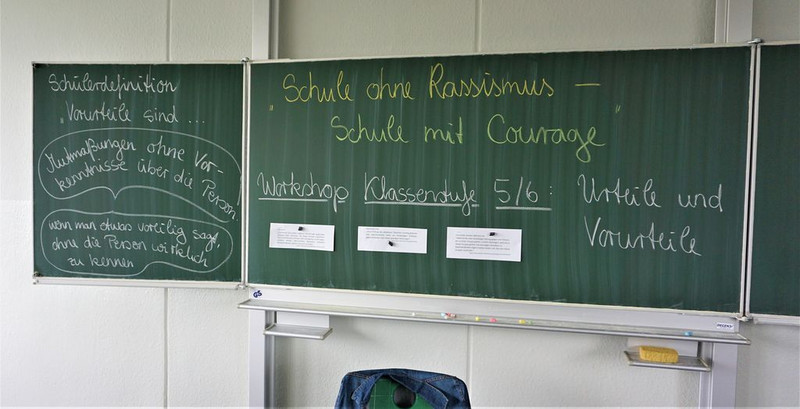 Schülerdefinition
„Vorurteile sind ...
Mutmaßungen ohne Vor-
kenntnisse über die Person
wenn man etwas voreilig sagt,
ohne die Person wirklich
zu kennen
„Schule ohne Rassismus –
Schule mit Courage"
Workshop Klassenstufe 5/6: Urteile und
Vorurteile
GS